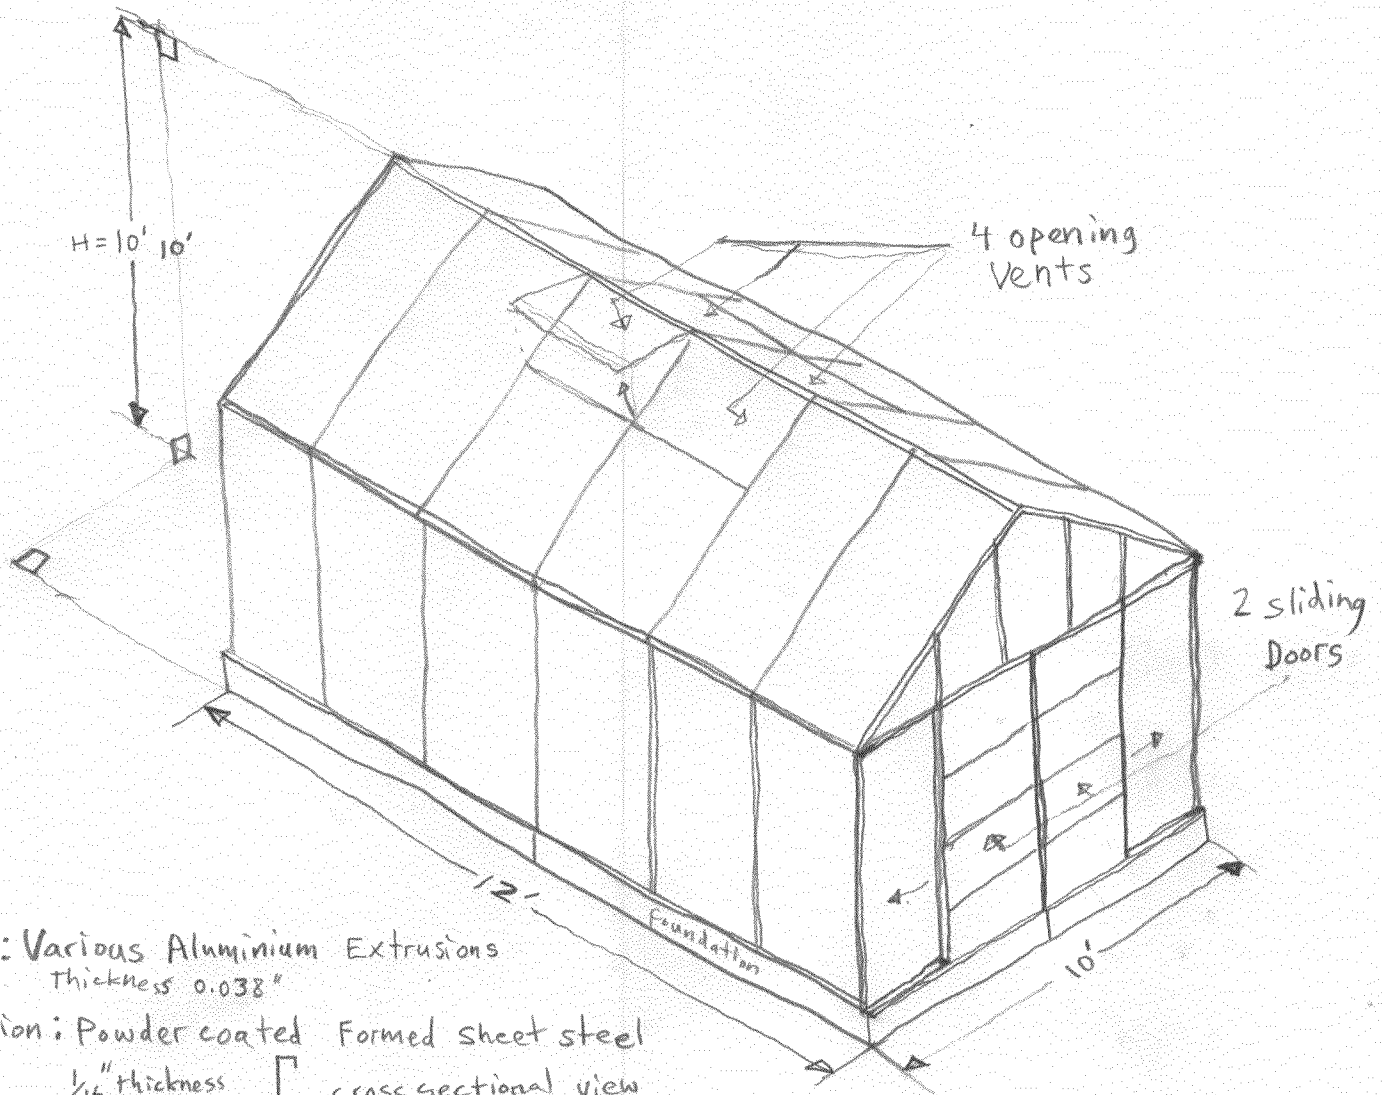 H=10' 10'
4 opening
Vents
2 sliding
Doors
12'
Foundation
10'
: Various Aluminium Extrusions
Thickness 0.038"
ion: Powder coated Formed sheet steel
1/16" thickness cross sectional view